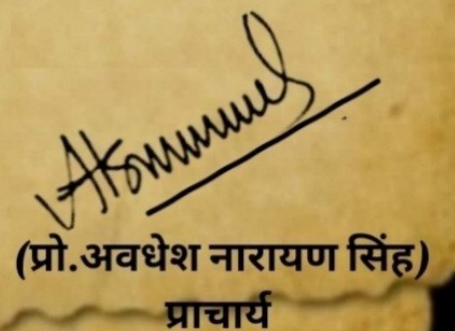 (प्रो.अवधेश नारायण सिंह)
प्राचार्य